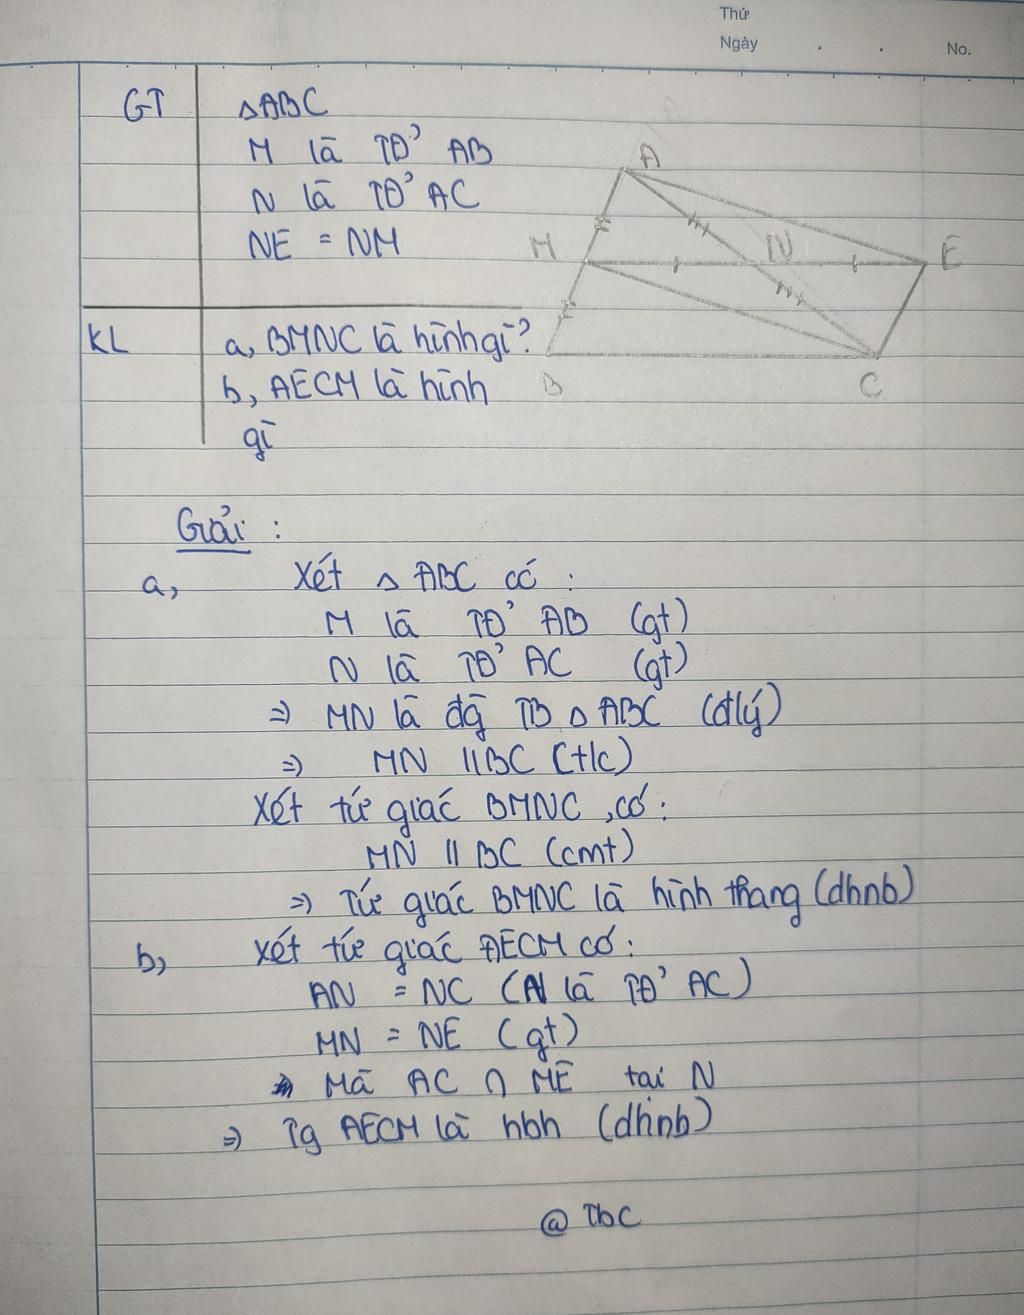 Thứ
Ngày . . No.
GT ΔABC
M là TĐ' AB
N là TĐ' AC
NE = NM
KL a, BMNC là hình gì?
b, AECM là hình
gì
A
M N E
B C
Giải :
a, Xét Δ ABC có :
M là TĐ' AB (gt)
N là TĐ' AC (gt)
=> MN là đg TB Δ ABC (đlý)
=> MN // BC (t/c)
Xét tứ giác BMNC , có :
MN // BC (cmt)
=> Tứ giác BMNC là hình thang (dhnb)
b, Xét tứ giác AECM có :
AN = NC (N là TĐ' AC)
MN = NE (gt)
Mà AC ∩ ME tại N
=> Tg AECM là hbh (dhnb)
@ TbC